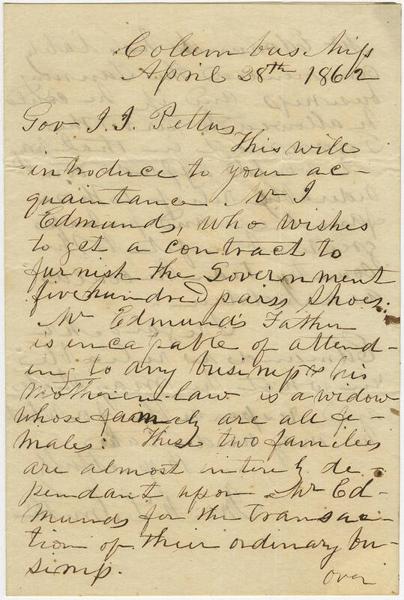 Columbus Miss
April 28th 1862
Gov J. J. Pettus
This will
introduce to your ac-
quaintance. W J
Edmunds, who wishes
to get a contract to
furnish the Government
five hundred pairs Shoes.
Mr Edmunds Father
is incapable of attend-
ing to any business & his
Mother in-law is a widow
whose family are all fe-
males: These two families
are almost intirely de
pendant upon Mr Ed-
munds for the transac-
tion of their ordinary bu-
siness.
over